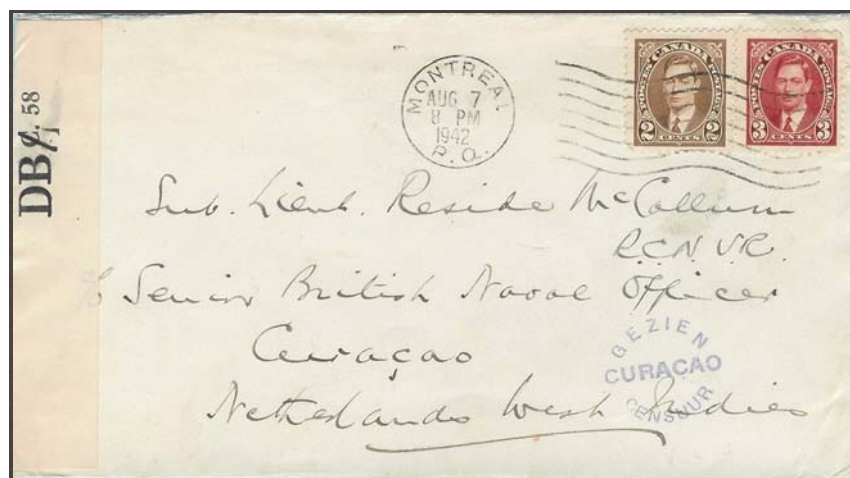 DB/ . 58
MONTREAL
AUG 7
8 PM
1942
P.Q.
POSTES CANADA POSTAGE
2 CENTS 2
POSTES CANADA POSTAGE
3 CENTS 3
Sub. Lieut. Reside McCallum
R.C.N.V.R.
c/o Senior British Naval Officer
Curaçao
Netherlands West Indies
GEZIEN
CURAÇAO
CENSUUR